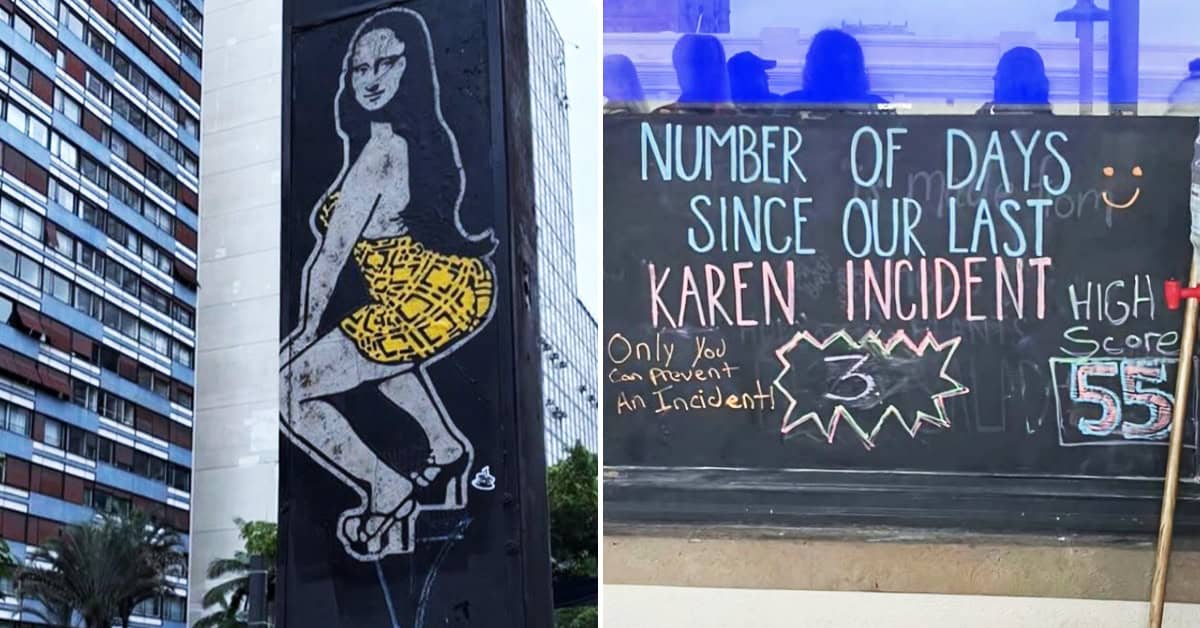 NUMBER OF DAYS
SINCE OUR LAST
KAREN INCIDENT
HIGH
Score
55
Only You
Can Prevent
An Incident!
3